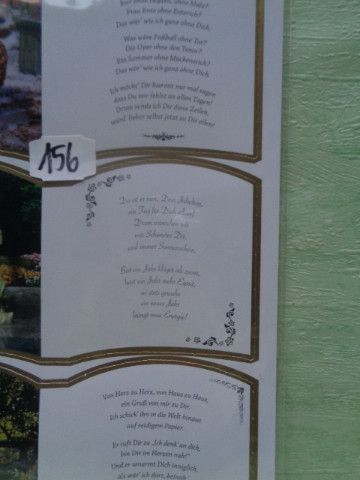 Frau Ente ohne Enterich?
Das wär' wie ich ganz ohne Dich.
Was wäre Fußball ohne Tor?
Die Oper ohne den Tenor?
Ein Sommer ohne Mückenstich?
Das wär' wie ich ganz ohne Dich.
Ich möcht' Dir hiermit nur mal sagen
dass Du mir fehlst an allen Tagen!
Drum sende ich Dir diese Zeilen,
würd' lieber selbst jetzt zu Dir eilen!
156
Da ist er nun, Dein Jubeltag,
ein Tag für Dich
Drum wünschen wir
mit Schönstes Dir,
und immer Sonnenschein.
Bist ein Jahr klüger als zuvor,
hast ein Jahr mehr
ein neues Jahr
bringt neue Energie!
Von Herz zu Herz, von Haus zu Haus,
ein Gruß von mir zu Dir.
Ich schick' ihn in die Welt hinaus
auf seidigem Papier.
Er ruft Dir zu „Ich denk' an dich,
bin Dir im Herzen nah!"
Und er umarmt Dich inniglich,
als wär' ich dort,